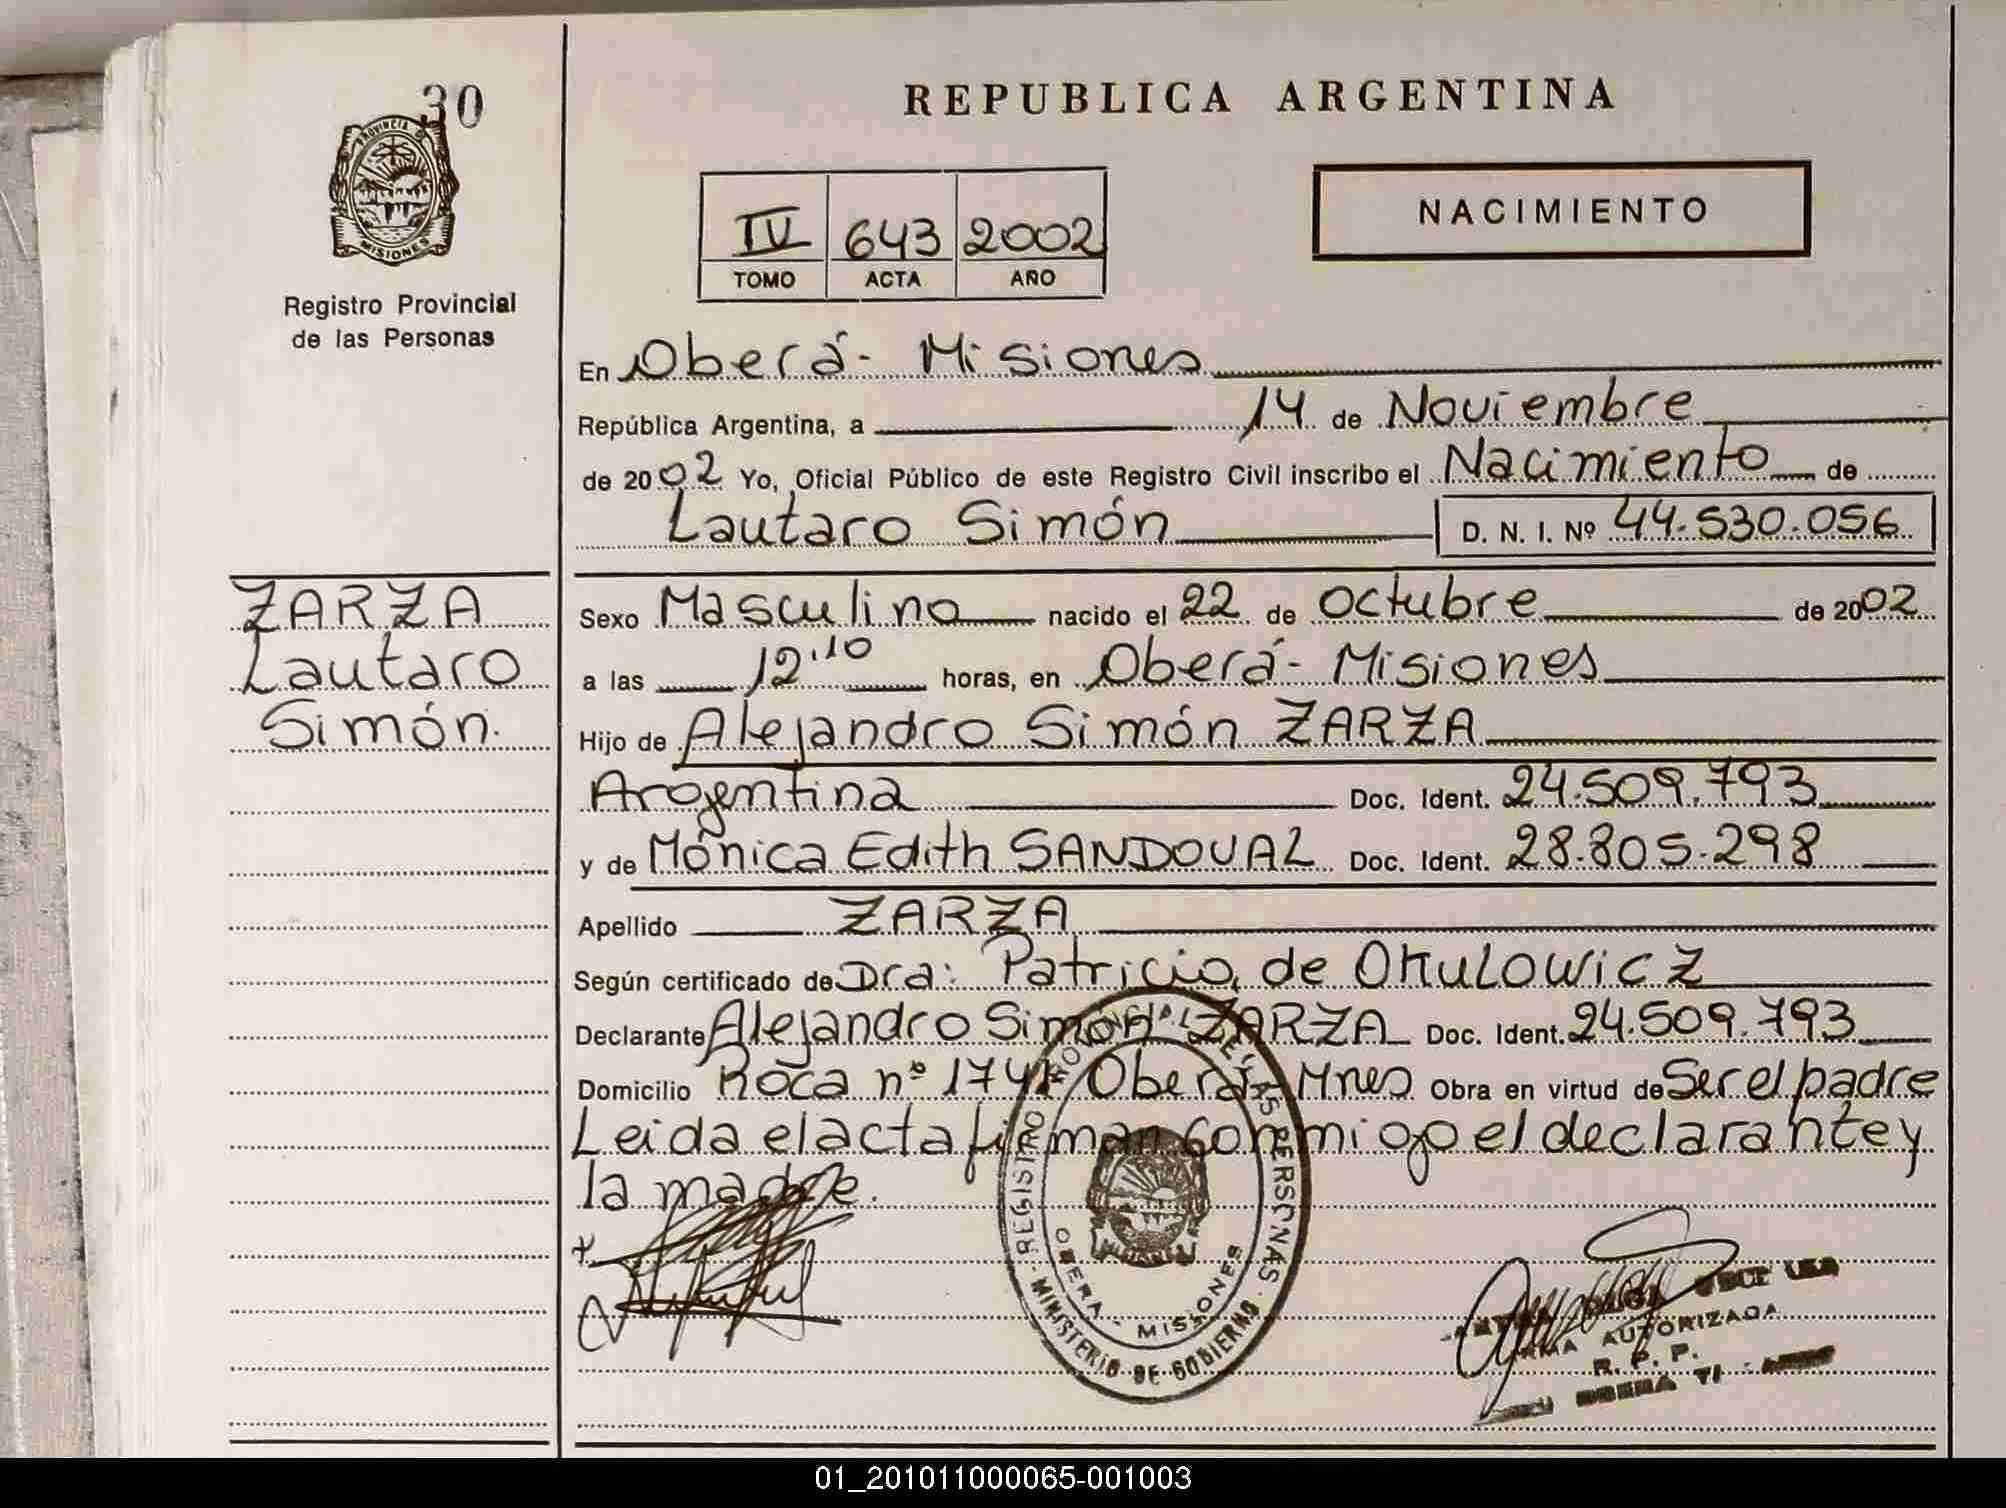 30
PROVINCIA DE
MISIONES
Registro Provincial
de las Personas
ZARZA
Lautaro
Simón.
REPUBLICA ARGENTINA
NACIMIENTO
IV 643 2002
TOMO ACTA AÑO
En Oberá- Misiones
República Argentina, a 14 de Noviembre
de 2002 Yo, Oficial Público de este Registro Civil inscribo el Nacimiento de
Lautaro Simón D. N. I. Nº 44.530.056
Sexo Masculino nacido el 22 de Octubre de 2002
a las 12'10 horas, en Oberá- Misiones
Hijo de Alejandro Simón ZARZA
Argentina Doc. Ident. 24.509.793
y de Mónica Edith SANDOVAL Doc. Ident. 28.805.298
Apellido ZARZA
Según certificado de Dra: Patricia de Okulowicz
Declarante Alejandro Simón ZARZA Doc. Ident. 24.509.793
Domicilio Roca nº Oberá- Mnes Obra en virtud de Ser el padre
Leida el acta firman conmigo el declarante y
la madre.
REGISTRO PROVINCIAL DE LAS PERSONAS
MINISTERIO DE GOBIERNO
OBERA - MISIONES
FIRMA AUTORIZADA
R. P. P.
OBERA
01_201011000065-001003